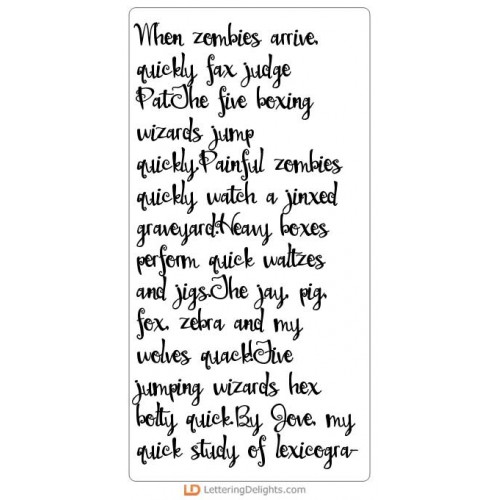 When zombies arrive,
quickly fax judge
Pat.The five boxing
wizards jump
quickly.Painful zombies
quickly watch a jinxed
graveyard.Heavy boxes
perform quick waltzes
and jigs.The jay, pig,
fox, zebra and my
wolves quack!Five
jumping wizards hex
bolty quick.By Jove, my
quick study of lexicogra-
LD LetteringDelights.com